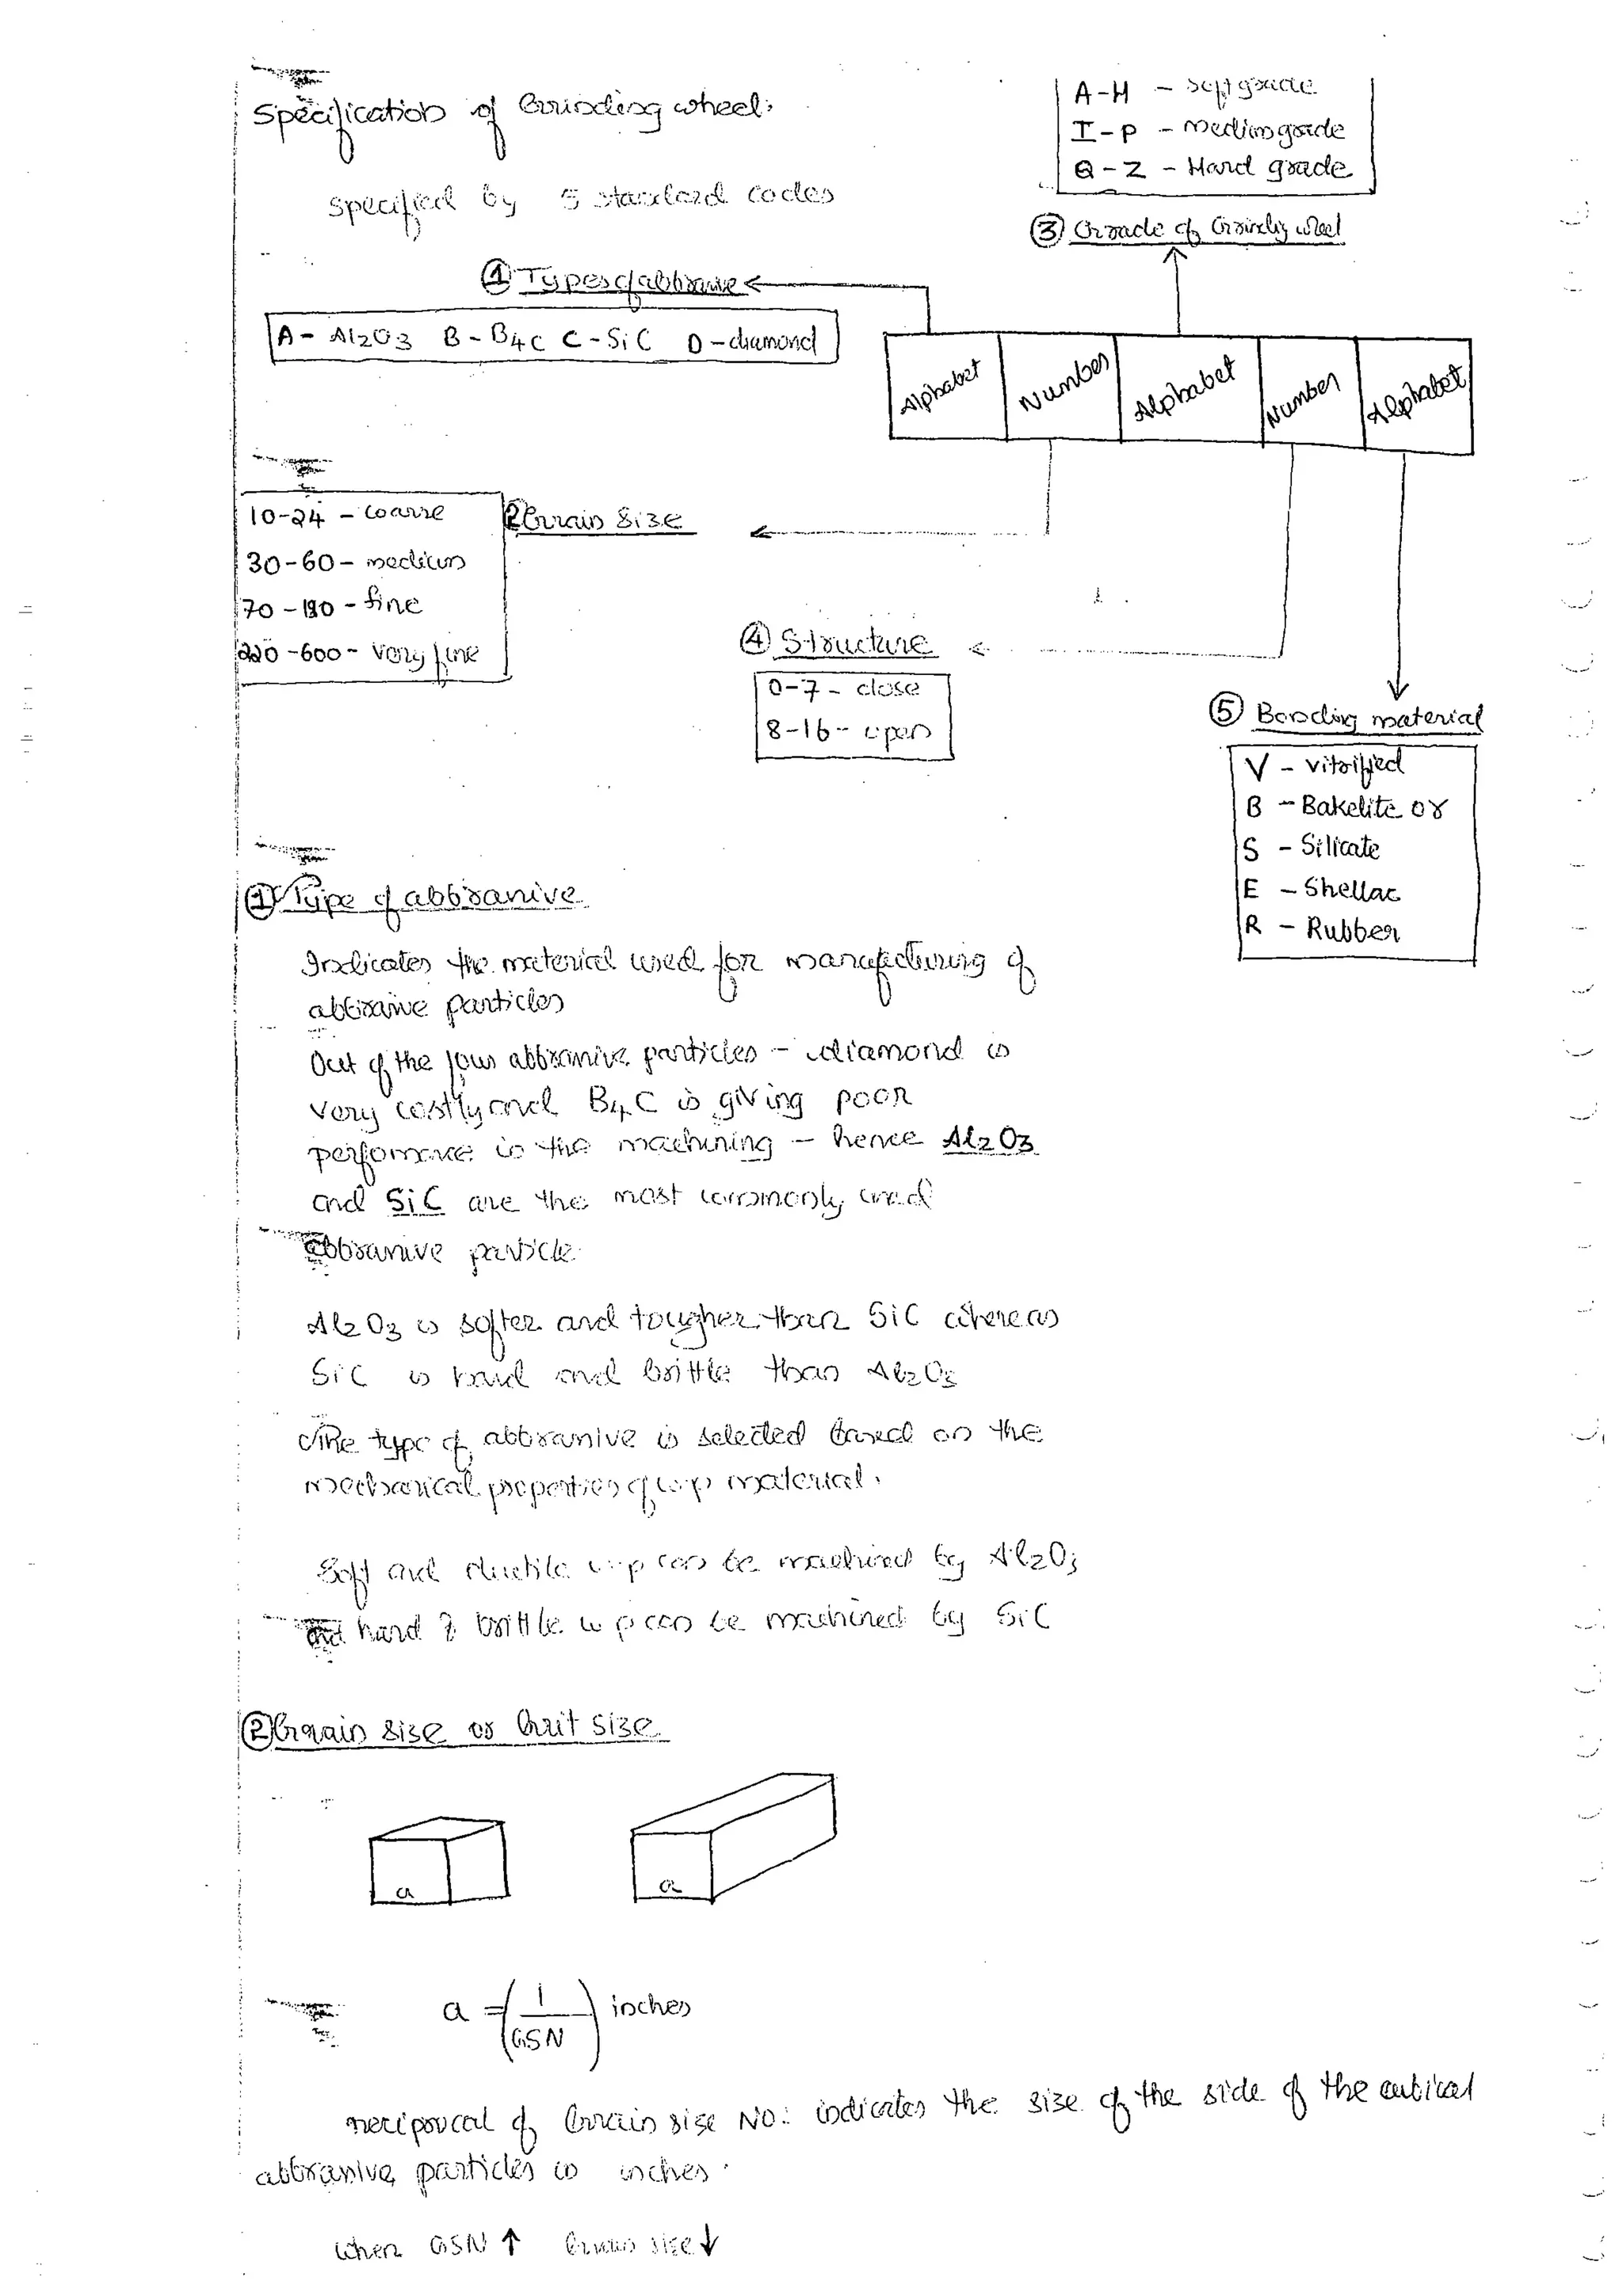 Specification of Grinding wheel:
Specified by 5 standard codes
A-H - Soft grade
I-P - Medium grade
Q-Z - Hard grade
③ Grade of Grinding wheel
① Types of abbrasive
A - Al2O3 B - B4C C - SiC D - diamond
Alphabet Number Alphabet Number Alphabet
② Grain Size
10-24 - coarse
30-60 - medium
70-180 - fine
220-600 - Very fine
④ Structure
0-7 - close
8-16 - open
⑤ Bonding material
V - vitrified
B - Bakelite or
S - Silicate
E - Shellac
R - Rubber
① Type of abbrasive
Indicates the material used for manufacturing of
abbrasive particles
Out of the four abbrasive particles - diamond is
very costly and B4C is giving poor
performance in the machining - hence Al2O3
and SiC are the most commonly used
abbrasive particle.
Al2O3 is softer and tougher than SiC whereas
SiC is hard and brittle than Al2O3
The type of abbrasive is selected based on the
mechanical properties of w.p material.
Soft and ductile w.p can be machined by Al2O3
and hard & brittle w.p can be machined by SiC
② Grain size or Grit size
a
a
a = (1/GSN) inches
reciporcal of Grain size No: indicates the size of the side of the cubical
abbrasive particles in inches.
when GSN ↑ Grain size ↓